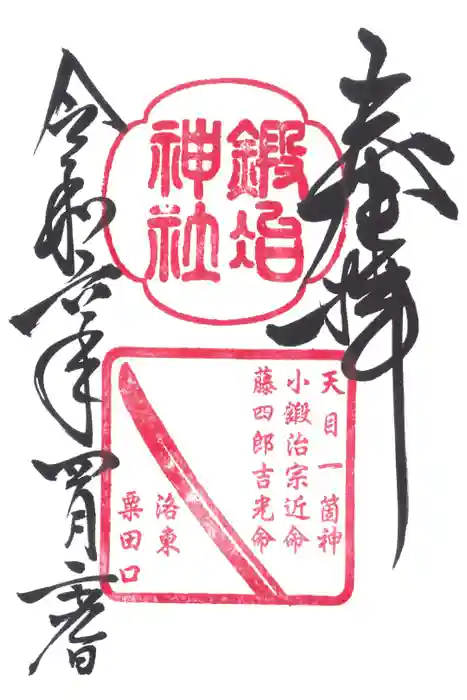 奉拝
鍛冶
神社
天目一箇神
小鍛冶宗近命
藤四郎吉光命
洛東
粟田口
令和六年四月二日